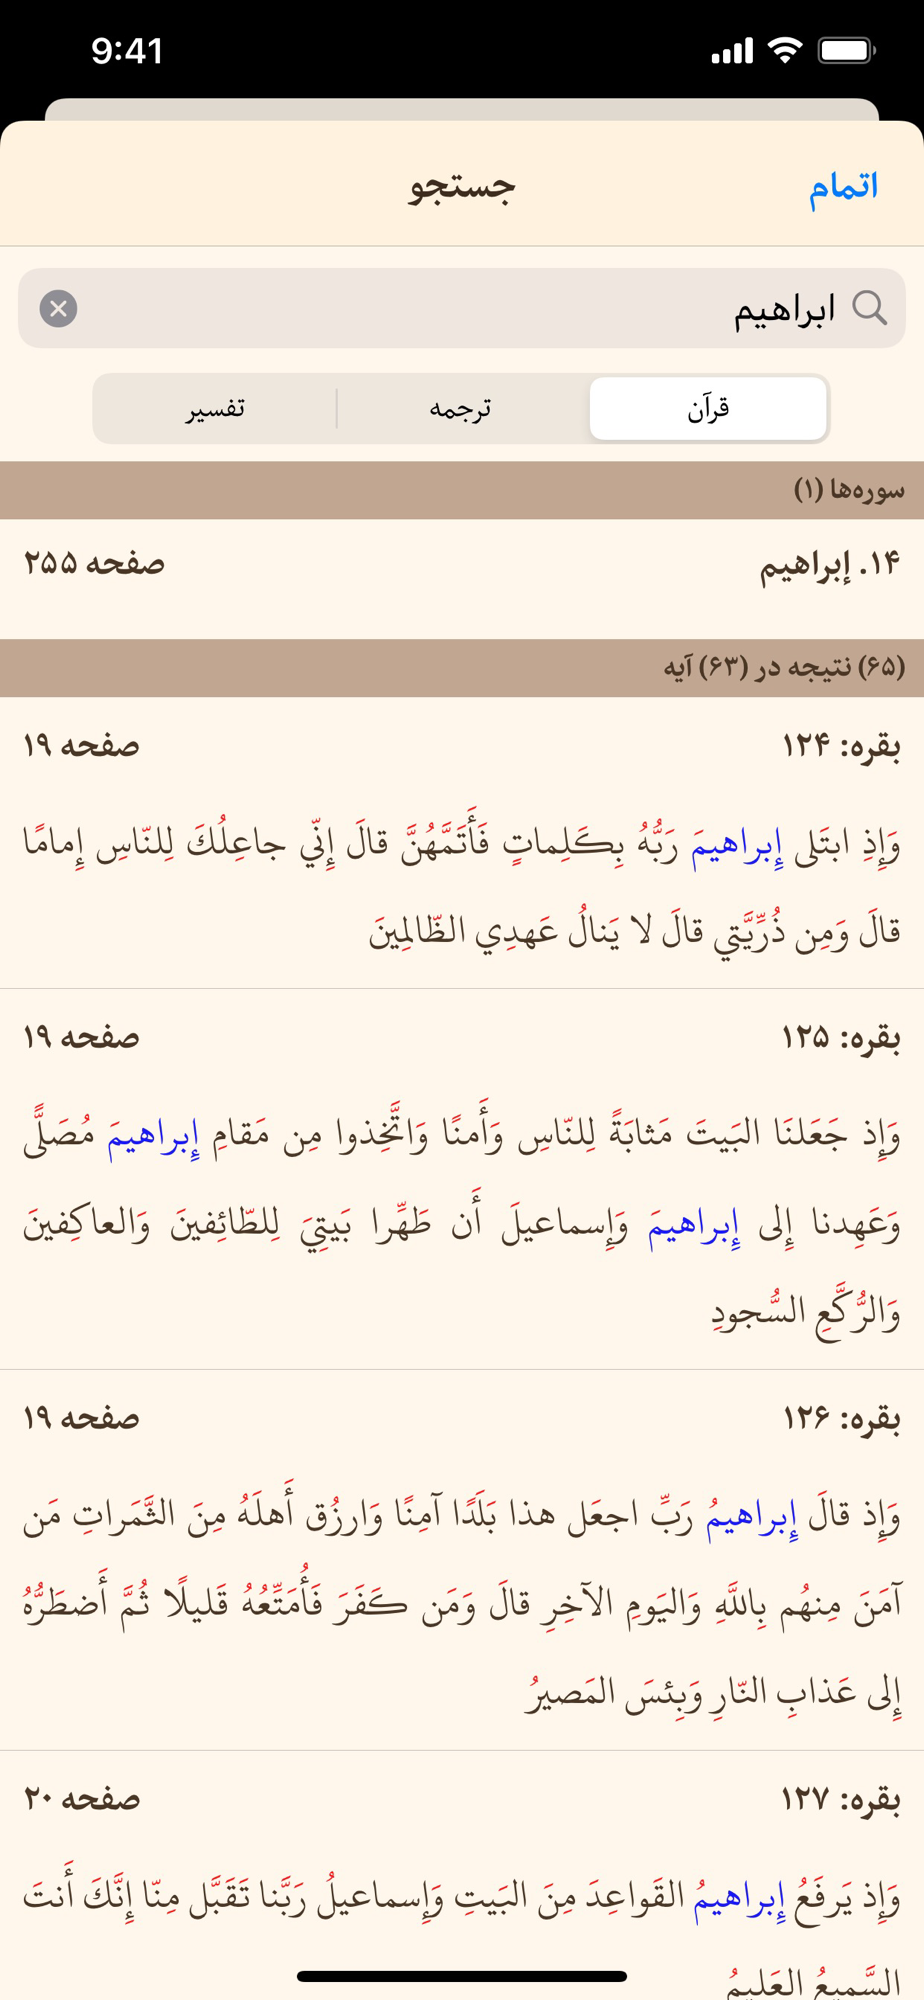 9:41
جستجو
اتمام
ابراهیم
قرآن
ترجمه
تفسیر
سوره‌ها (۱)
۱۴. إبراهيم
صفحه ۲۵۵
(۶۵) نتیجه در (۶۳) آیه
بقره: ۱۲۴
صفحه ۱۹
وَإِذِ ابتَلى إِبراهيمَ رَبُّهُ بِكَلِماتٍ فَأَتَمَّهُنَّ قالَ إِنّي جاعِلُكَ لِلنّاسِ إِمامًا
قالَ وَمِن ذُرِّيَّتي قالَ لا يَنالُ عَهدِي الظّالِمينَ
بقره: ۱۲۵
صفحه ۱۹
وَإِذ جَعَلنَا البَيتَ مَثابَةً لِلنّاسِ وَأَمنًا وَاتَّخِذوا مِن مَقامِ إِبراهيمَ مُصَلًّى
وَعَهِدنا إِلى إِبراهيمَ وَإِسماعيلَ أَن طَهِّرا بَيتِيَ لِلطّائِفينَ وَالعاكِفينَ
وَالرُّكَّعِ السُّجودِ
بقره: ۱۲۶
صفحه ۱۹
وَإِذ قالَ إِبراهيمُ رَبِّ اجعَل هذا بَلَدًا آمِنًا وَارزُق أَهلَهُ مِنَ الثَّمَراتِ مَن
آمَنَ مِنهُم بِاللَّهِ وَاليَومِ الآخِرِ قالَ وَمَن كَفَرَ فَأُمَتِّعُهُ قَليلًا ثُمَّ أَضطَرُّهُ
إِلى عَذابِ النّارِ وَبِئسَ المَصيرُ
بقره: ۱۲۷
صفحه ۲۰
وَإِذ يَرفَعُ إِبراهيمُ القَواعِدَ مِنَ البَيتِ وَإِسماعيلُ رَبَّنا تَقَبَّل مِنّا إِنَّكَ أَنتَ
السَّميعُ العَليمُ